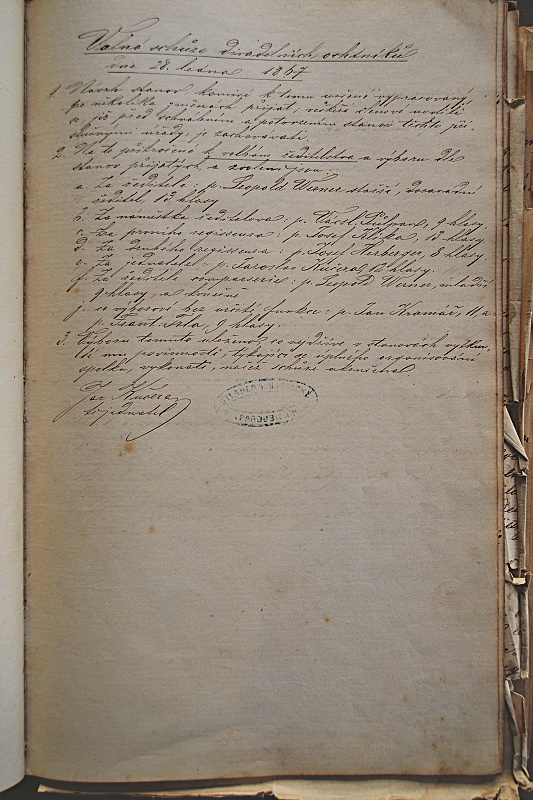 Valná schůze divadelních ochotníků
dne 28. ledna 1867
1. Návrh stanov, komisí k tomu zvolené vypracovaný
po několika změnách přijat, veškeré členové
a již před schválením a potvrzením stanov těchto pří-
slušnými úřady, je zachovávati.
2. Na to přikročeno k volbám ředitelstva a výboru dle
stanov přijatých, a zvoleni jsou:
a. Za ředitele: p. Leopold Werner starší, dosavadní
ředitel, 13 hlasy
b. Za náměstka ředitelova: p. Václ. Štěpán, 9 hlasy
c. Za prvního regisseura: p. Josef 13 hlasy
d. Za druhého regisseura: p. Josef Herberger, 8 hlasy
e. Za jednatele: p. Jaroslav Kučera, 13 hlasy
f. Za ředitele comparserie: p. Leopold Werner, mladší
9 hlasy, a konečně
j. co výborové bez určité funkce: p. Jan Kramář, 11, a
p. Frant. 9 hlasy.
3. Výboru tomuto uloženo, co nejdříve v stanovách vytknu-
té mu povinnosti, týkající se úplného organisování
spolku, vykonati, načež schůze ukončena.
Jar. Kučera
jednatel